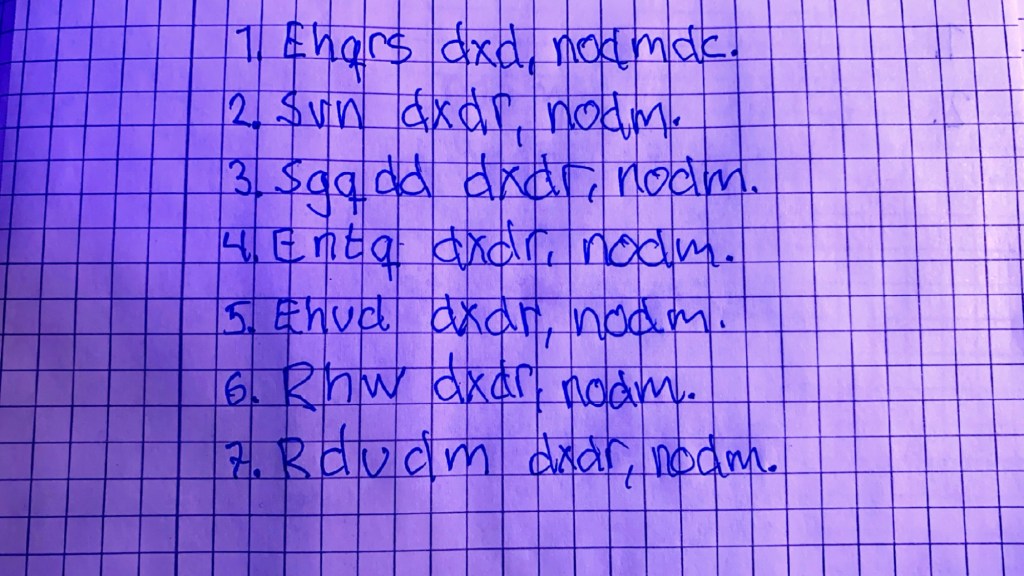 1. Ehqrs dxd, nodmdc.
2. Svn dxdr, nodm.
3. Sgqdd dxdr, nodm.
4. Entq dxdr, nodm.
5. Ehud dxdr, nodm.
6. Rhw dxdr, nodm.
7. Rdudm dxdr, nodm.